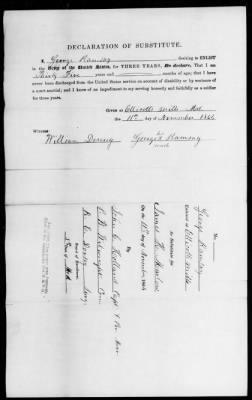 DECLARATION OF SUBSTITUTE.
I, George Ramsay desiring to ENLIST
in the Army of the United States, for THREE YEARS, Do declare, That I am
Thirty Five years and months of age; that I have
never been discharged from the United States service on account of disability or by sentence of
a court martial; and I know of no impediment to my serving honestly and faithfully as a soldier
for three years.
Given at Ellicotts Mills Md
the 11th day of November 1864
Witness:
his
George X Ramsay
mark
No.
George Ramsay
Enlisted at Ellicotts Mills
As Substitute for
On the 11th day of November 1864
John C. Holland Capt & Pro. Mar.
Com.
Surg.
Board of Enrolment